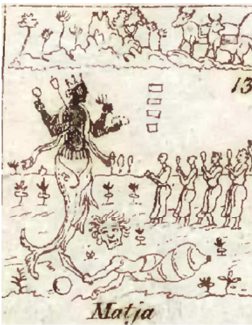 13
Matja